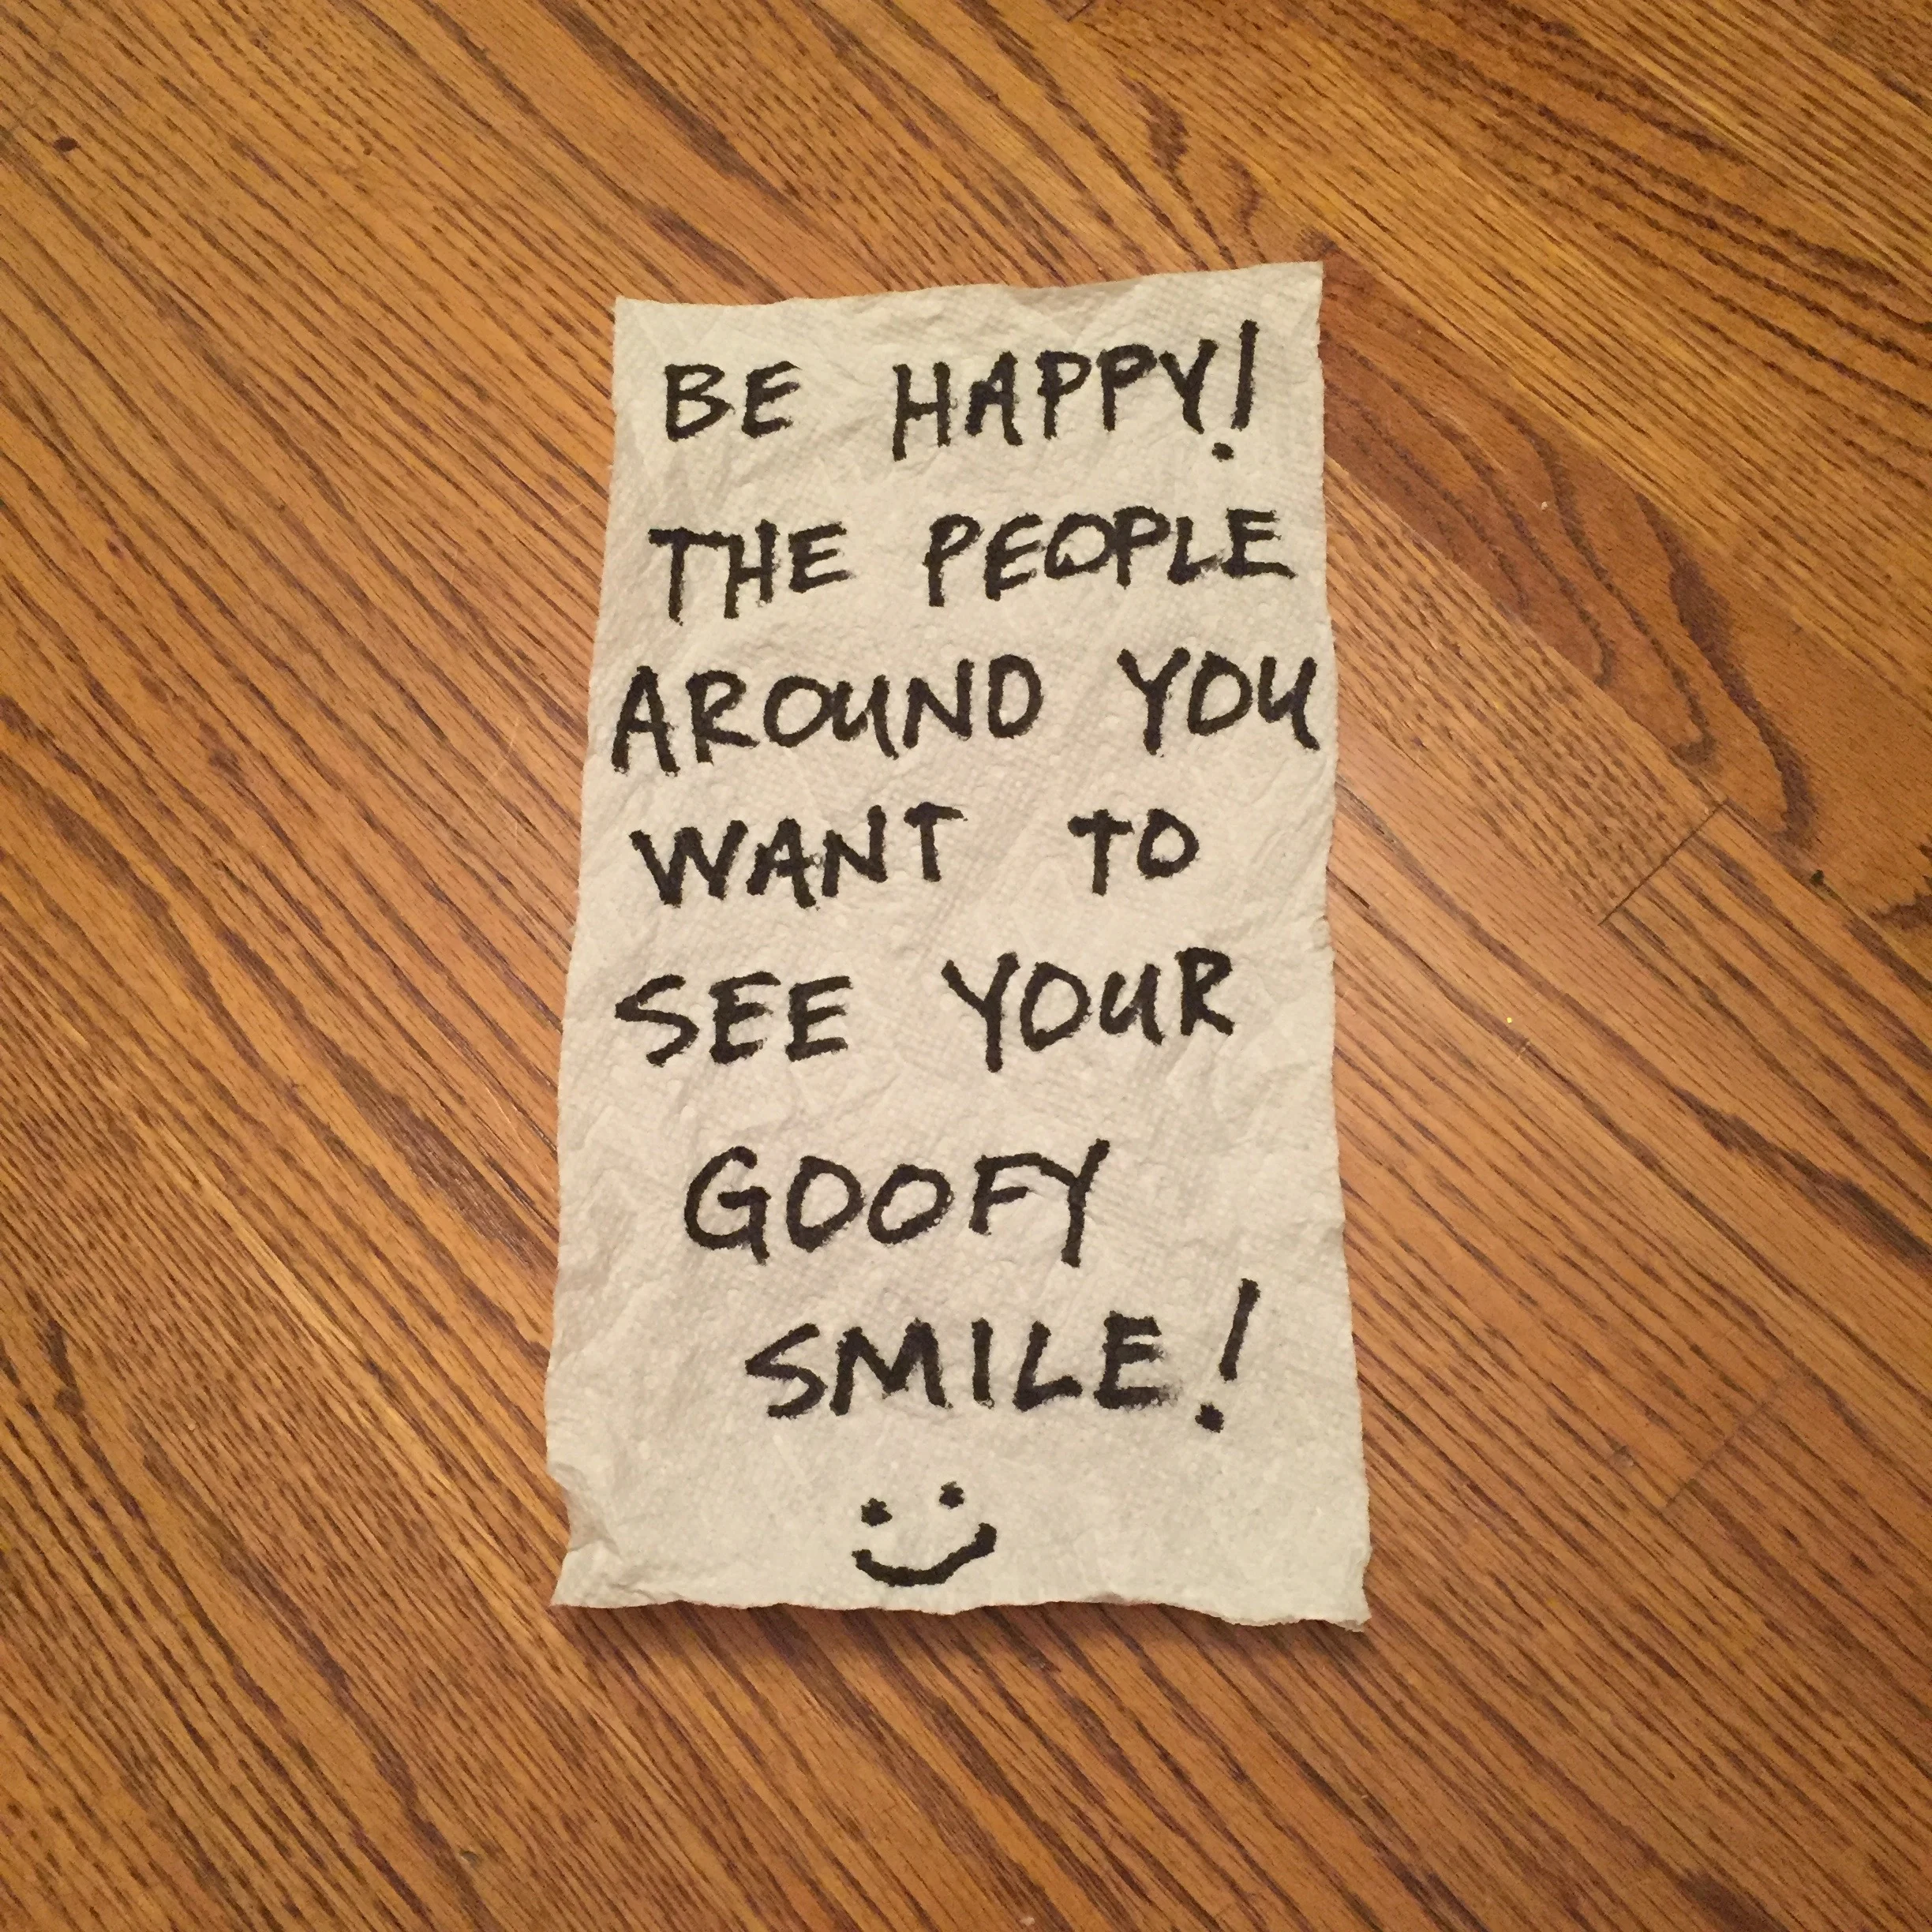 BE HAPPY!
THE PEOPLE
AROUND YOU
WANT TO
SEE YOUR
GOOFY
SMILE!